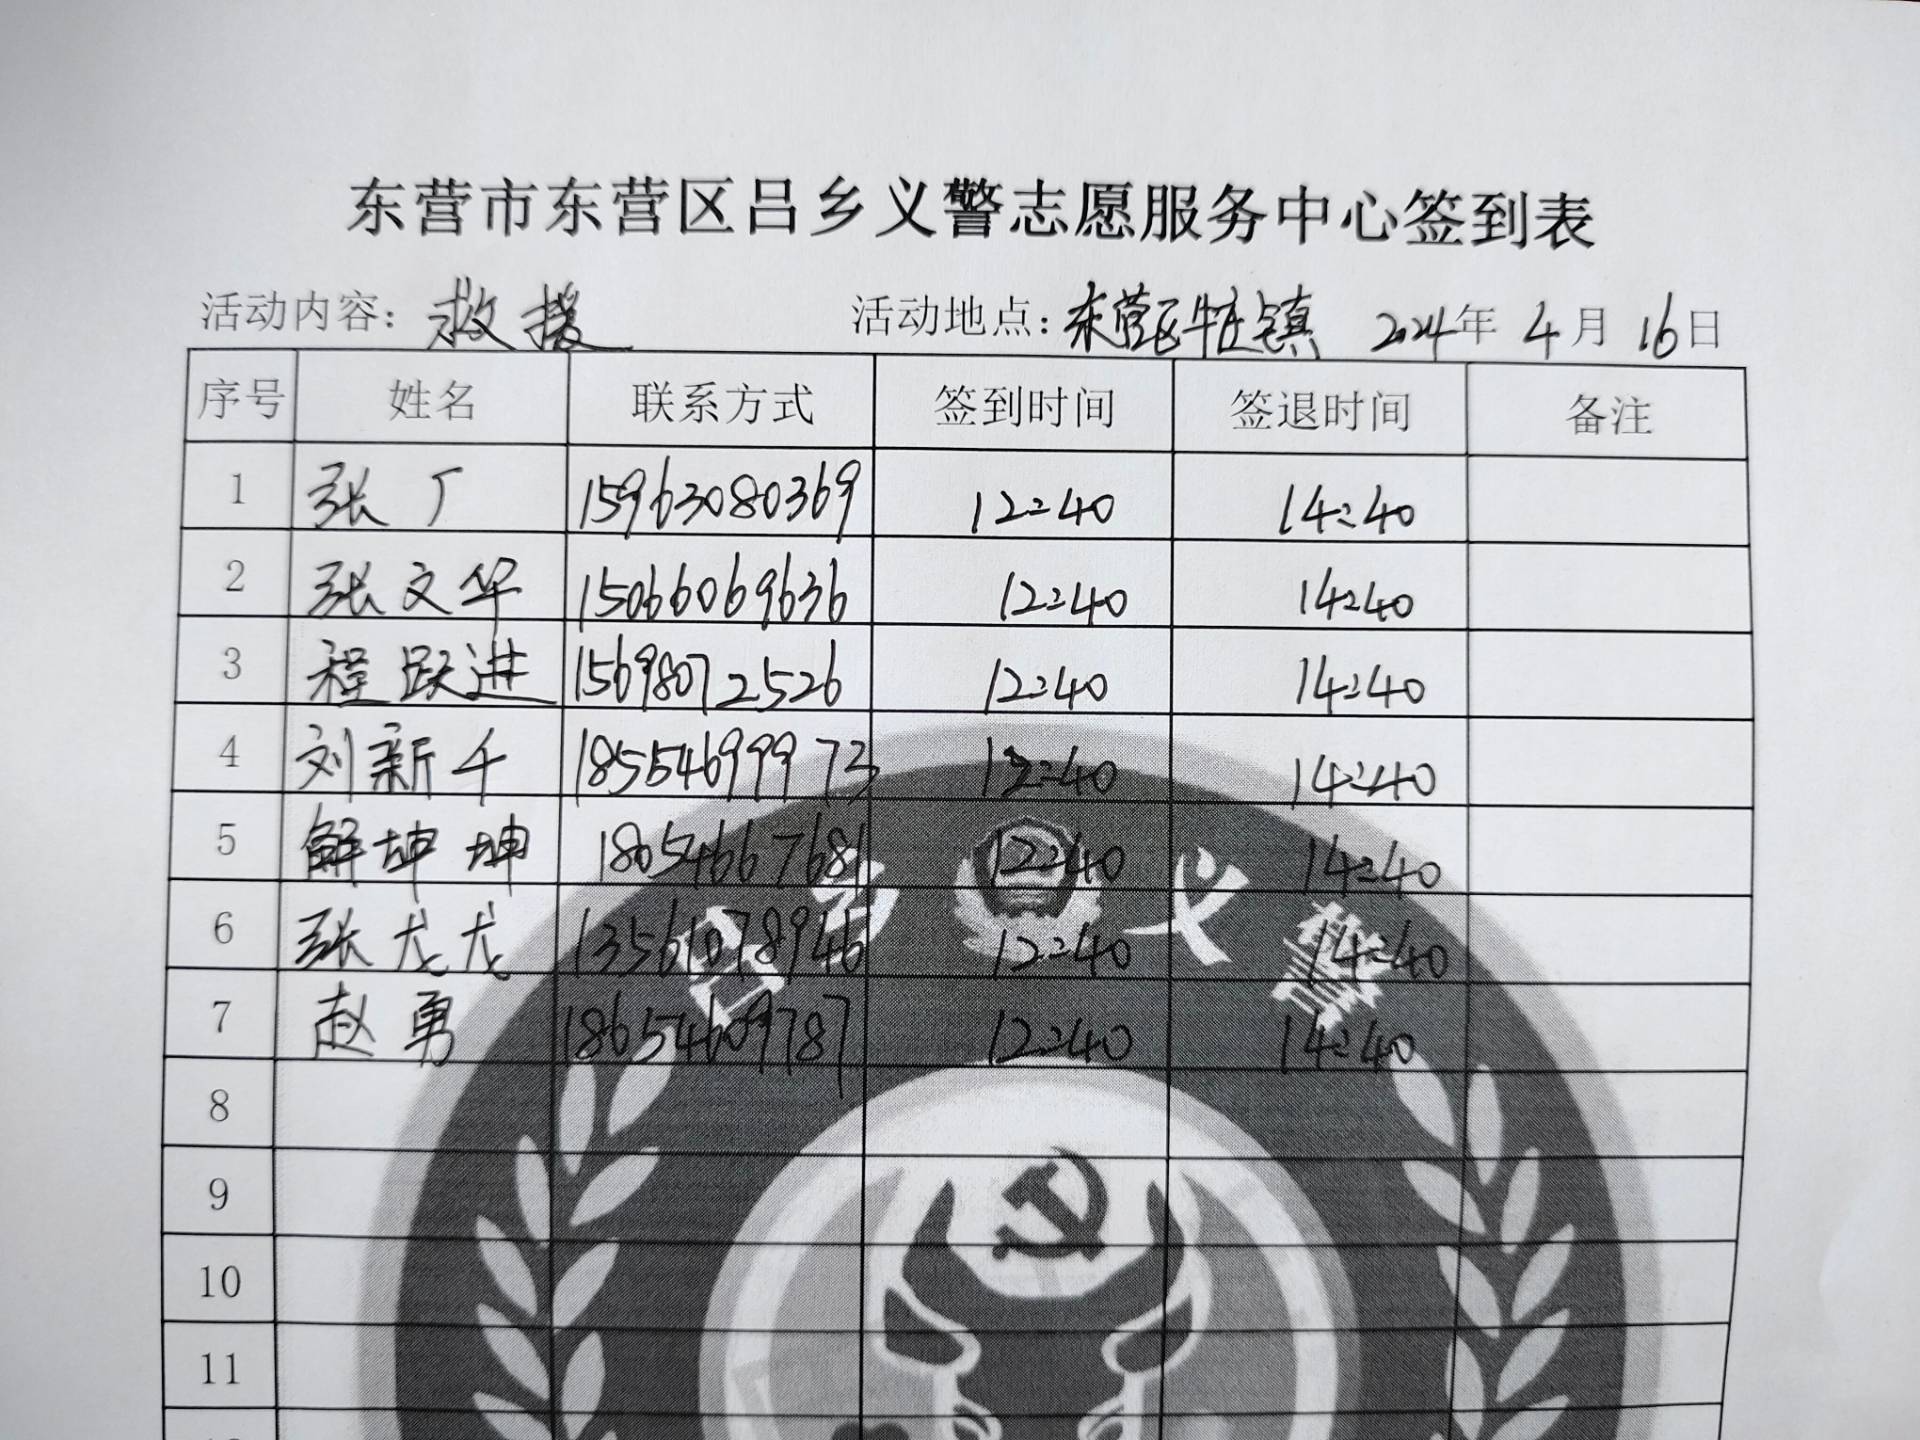 东营市东营区吕乡义警志愿服务中心签到表
活动内容: 救援 活动地点: 东营区牛庄镇 2024年 4月 16日
序号 姓名 联系方式 签到时间 签退时间 备注
1 张厂 15963080369 12:40 14:40
2 张文华 15066069636 12:40 14:40
3 程跃进 15698072526 12:40 14:40
4 刘新千 18554699973 12:40 14:40
5 解坤坤 18654667681 12:40 14:40
6 张尤尤 13561078946 12:40 14:40
7 赵勇 18654609787 12:40 14:40
8
9
10
11
吕乡义警